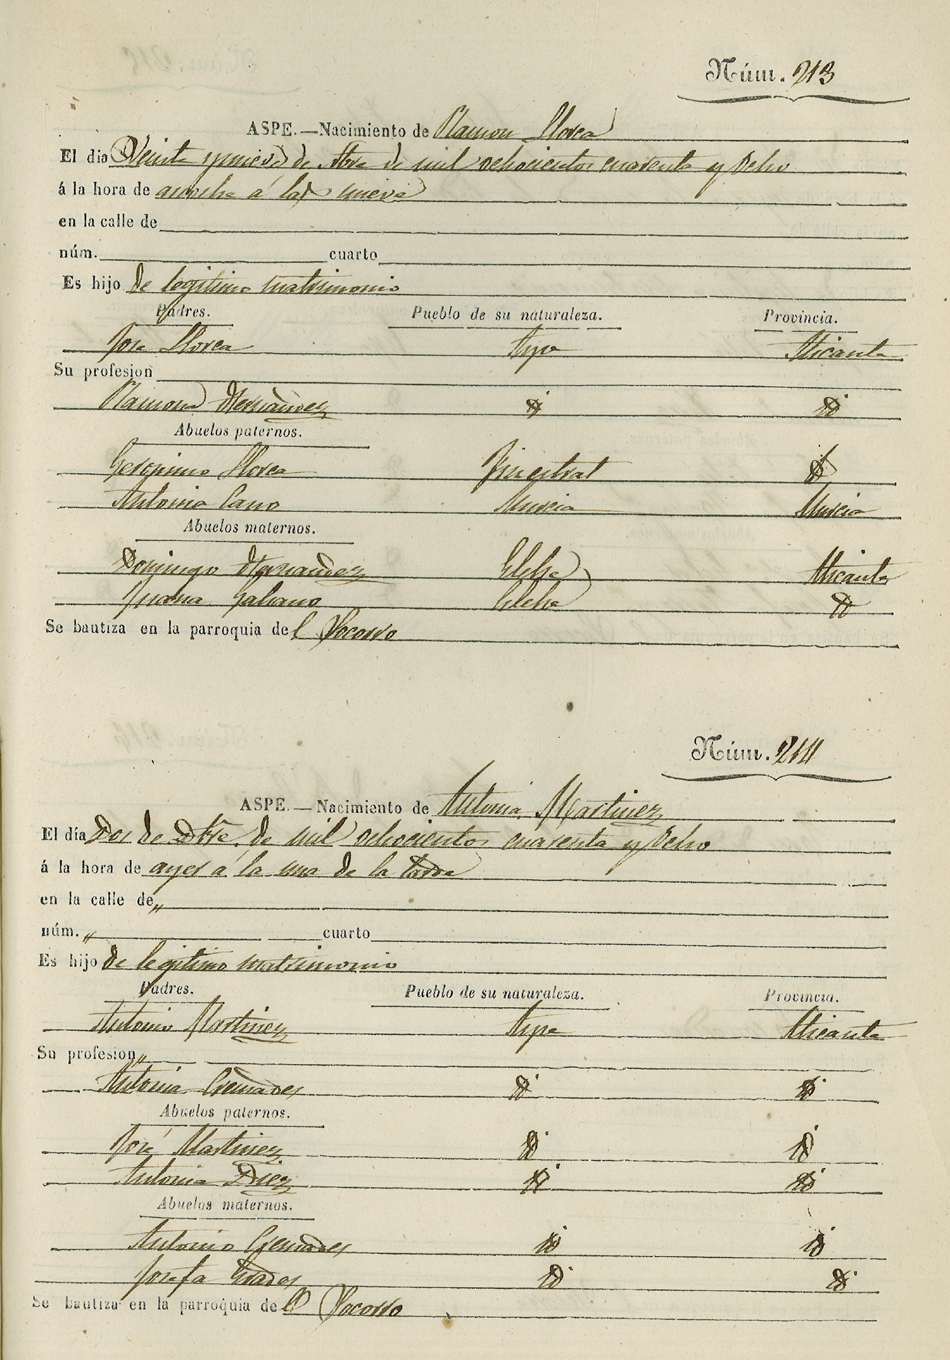 Núm. 213
ASPE.—Nacimiento de Ramon Llorca
El dia Veinte y nueve de Nbre de mil ochocientos cuarenta y ocho
á la hora de anoche á las nueve
en la calle de
núm. cuarto
Es hijo de legitimo matrimonio
Padres. Pueblo de su naturaleza. Provincia.
José Llorca Aspe Alicante
Su profesion
Ramona Hernandez id id
Abuelos paternos.
Geronimo Llorca Finestrat id
Antonia Cano Murcia Murcia
Abuelos maternos.
Domingo Hernandez Elche Alicante
Juana Galiano Elche id
Se bautiza en la parroquia del Socorro
Núm. 214
ASPE.—Nacimiento de Antonia Martinez
El dia Dos de Dbre. de mil ochocientos cuarenta y ocho
á la hora de ayer á la una de la tarde
en la calle de „
núm. „ cuarto
Es hijo de legitimo matrimonio
Padres. Pueblo de su naturaleza. Provincia.
Antonio Martinez Aspe Alicante
Su profesion „
Antonia Cremades id id
Abuelos paternos.
José Martinez id id
Antonia Diez id id
Abuelos maternos.
Antonio Cremades id id
Josefa id id
Se bautiza en la parroquia de Socorro